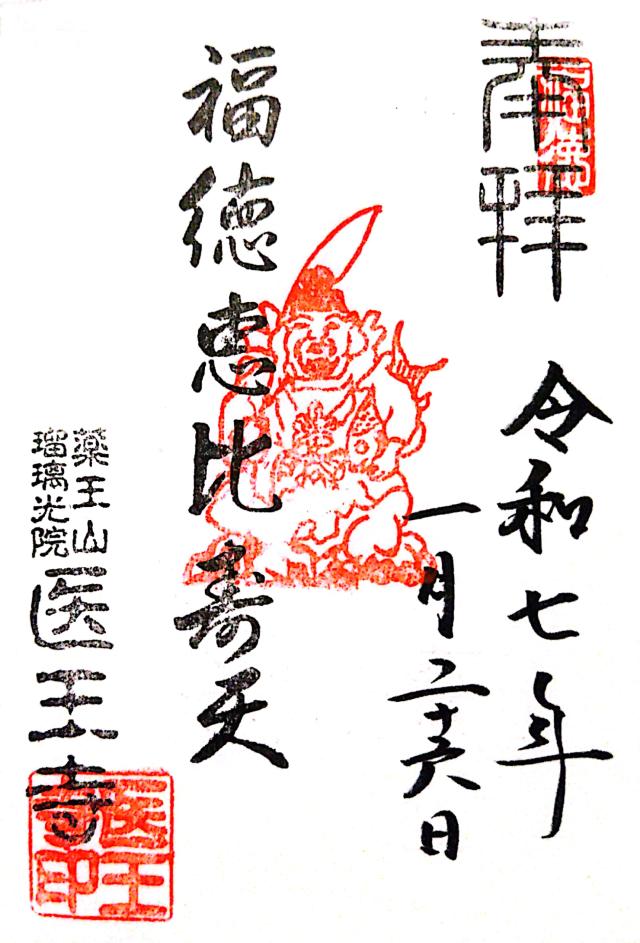 奉拝
令和七年
一月二十六日
福徳恵比寿天
薬王山
瑠璃光院
医王寺
医王
寺印